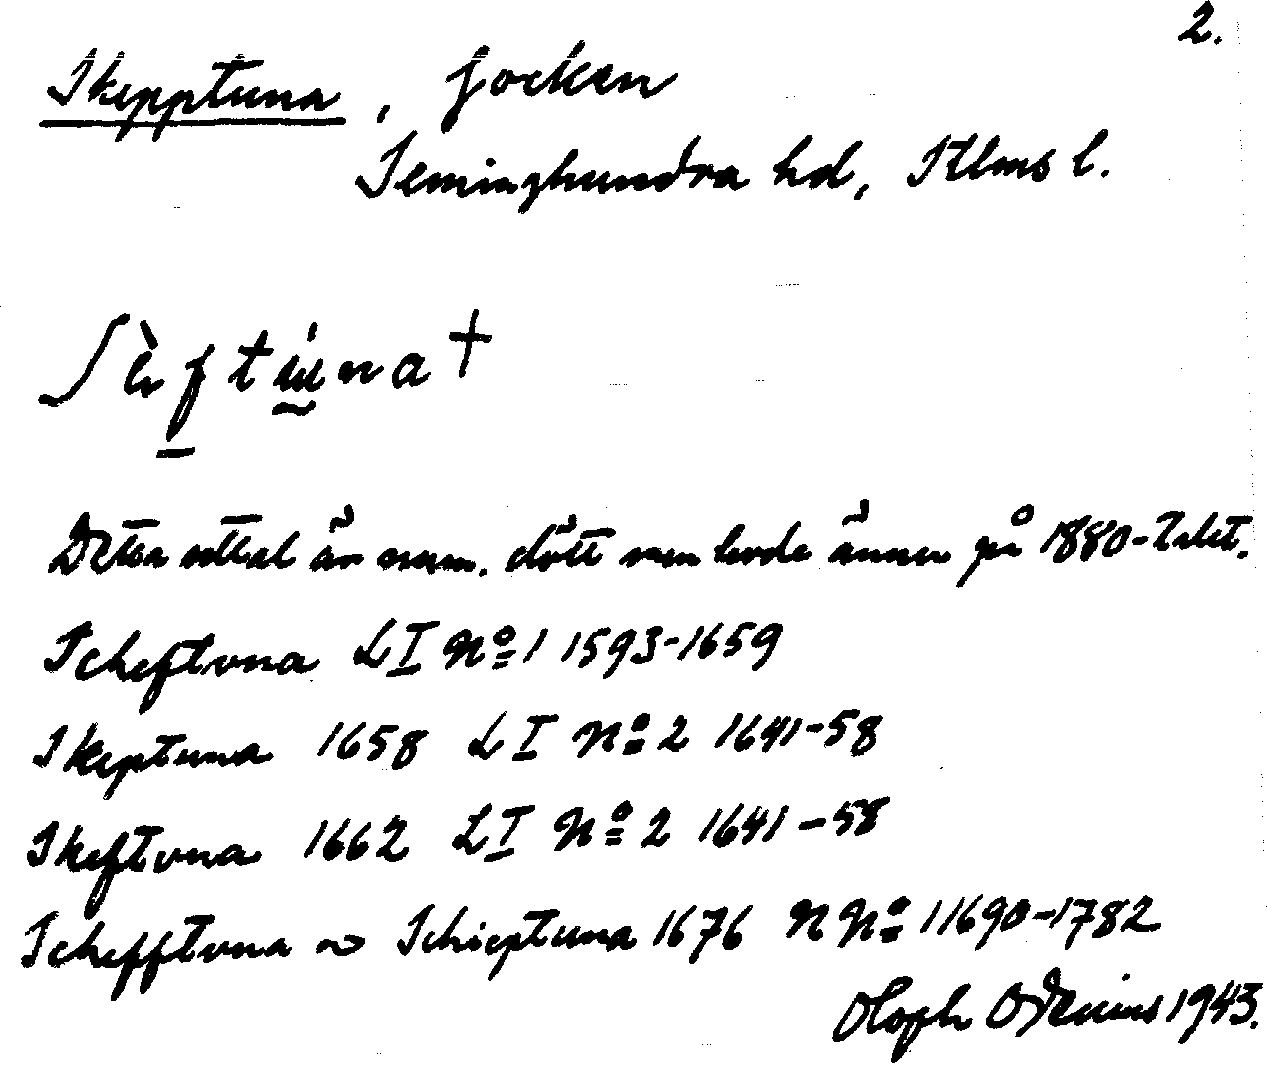 2.
Skepptuna, socken
Seminghundra hd, Sthms l.
ʃèftu̇na †
Detta uttal är num. dött men levde ännu på 1880-talet.
Scheftvna L I No 1 1593-1659
Skeptuna 1658 L I No 2 1641-58
Skeftvna 1662 L I No 2 1641-58
Schefftvna ~ Schieptuna 1676 N No 1 1690-1782
Oloph Odenius 1943.